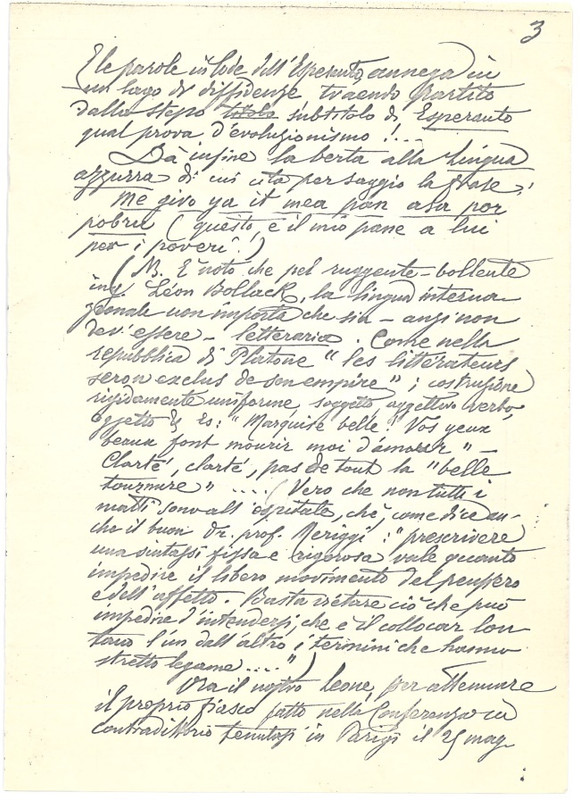 3
E le parole in lode dell'Esperanto annega in
un lago di diffidenze traendo partito
dallo stesso titolo subtitolo di Esperanto
qual prova d'evoluzionismo!...
Dà infine la berta alla Lingua
azzurra di cui cita per saggio la frase:
Me givo ya it mea pan asa por
pobru (questo, è il mio pane a lui
per i poveri!)
(N.B. È noto che pel ruggente-bollente
ing. Léon Bollack, la lingua interna
zionale non importa che sia - anzi non
dev'essere - letteraria. Come nella
repubblica di Platone "les littérateurs
seron exclus de son empire"; costruzione
rigidamente uniforme, soggetto, aggettivo verbo,
oggetto Es: "Marquise belle! Vos yeux
beaux font mourir moi d'amour" -
Clarté, clarté, pas de tout la "belle
tournure" .... (Vero che non tutti i
matti sono all'ospitale, chè, come dice an-
che il buon Dr. prof. Meriggi: "prescrivere
una sintassi fissa e rigorosa vale quanto
impedire il libero movimento del pensiero
e dell'affetto. Basta vietare ciò che può
impedire d'intendersi, che è il collocar lon
tano l'un dall'altro i termini che hanno
stretto legame....")
Ora il nostro Leone, per attenuare
il proprio fiasco fatto nella Conferenza in
contradittorio tenutasi in Parigi il 25 mag